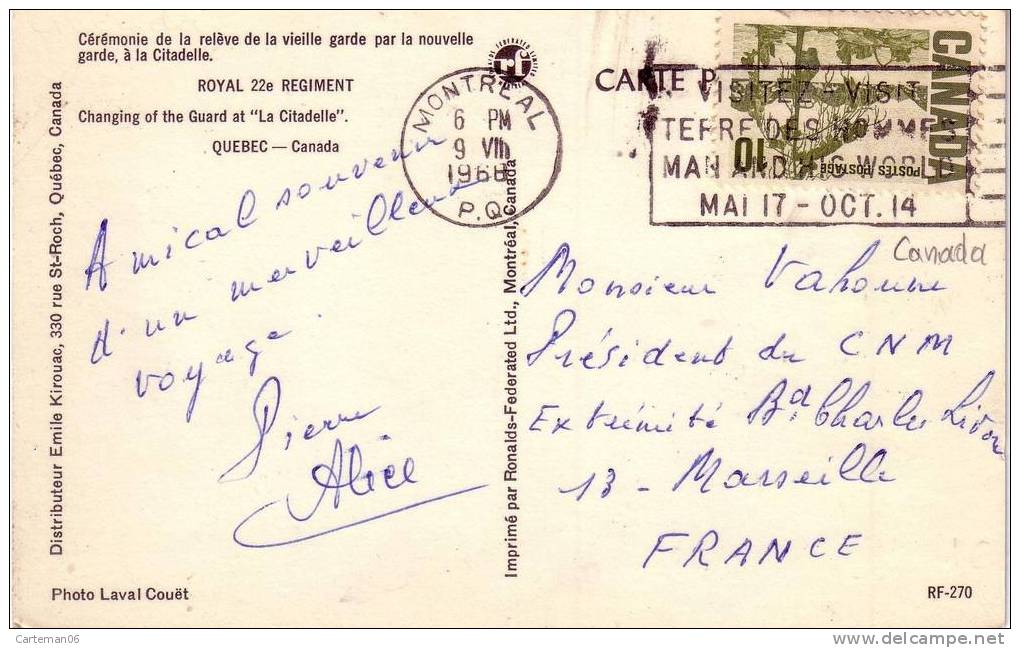 Cérémonie de la relève de la vieille garde par la nouvelle
garde, à la Citadelle.
ROYAL 22e REGIMENT
Changing of the Guard at "La Citadelle".
QUEBEC — Canada
Amical souvenir
d'un merveilleux
voyage.
Pierre
Alice
Photo Laval Couët
Distributeur Emile Kirouac, 330 rue St-Roch, Québec, Canada
Imprimé par Ronalds-Federated Ltd., Montréal, Canada
MONTREAL
6 PM
9 VIII
1968
P.Q.
CARTE P
VISITEZ - VISIT
TERRE DES HOMMES
MAN AND HIS WORLD
MAI 17 - OCT. 14
CANADA
10
POSTES/POSTAGE
Canada
Monsieur
Président du CNM
Extrémité Bd. Charles Livon
13 - Marseille
FRANCE
RF-270
Carteman06
delcampe.net